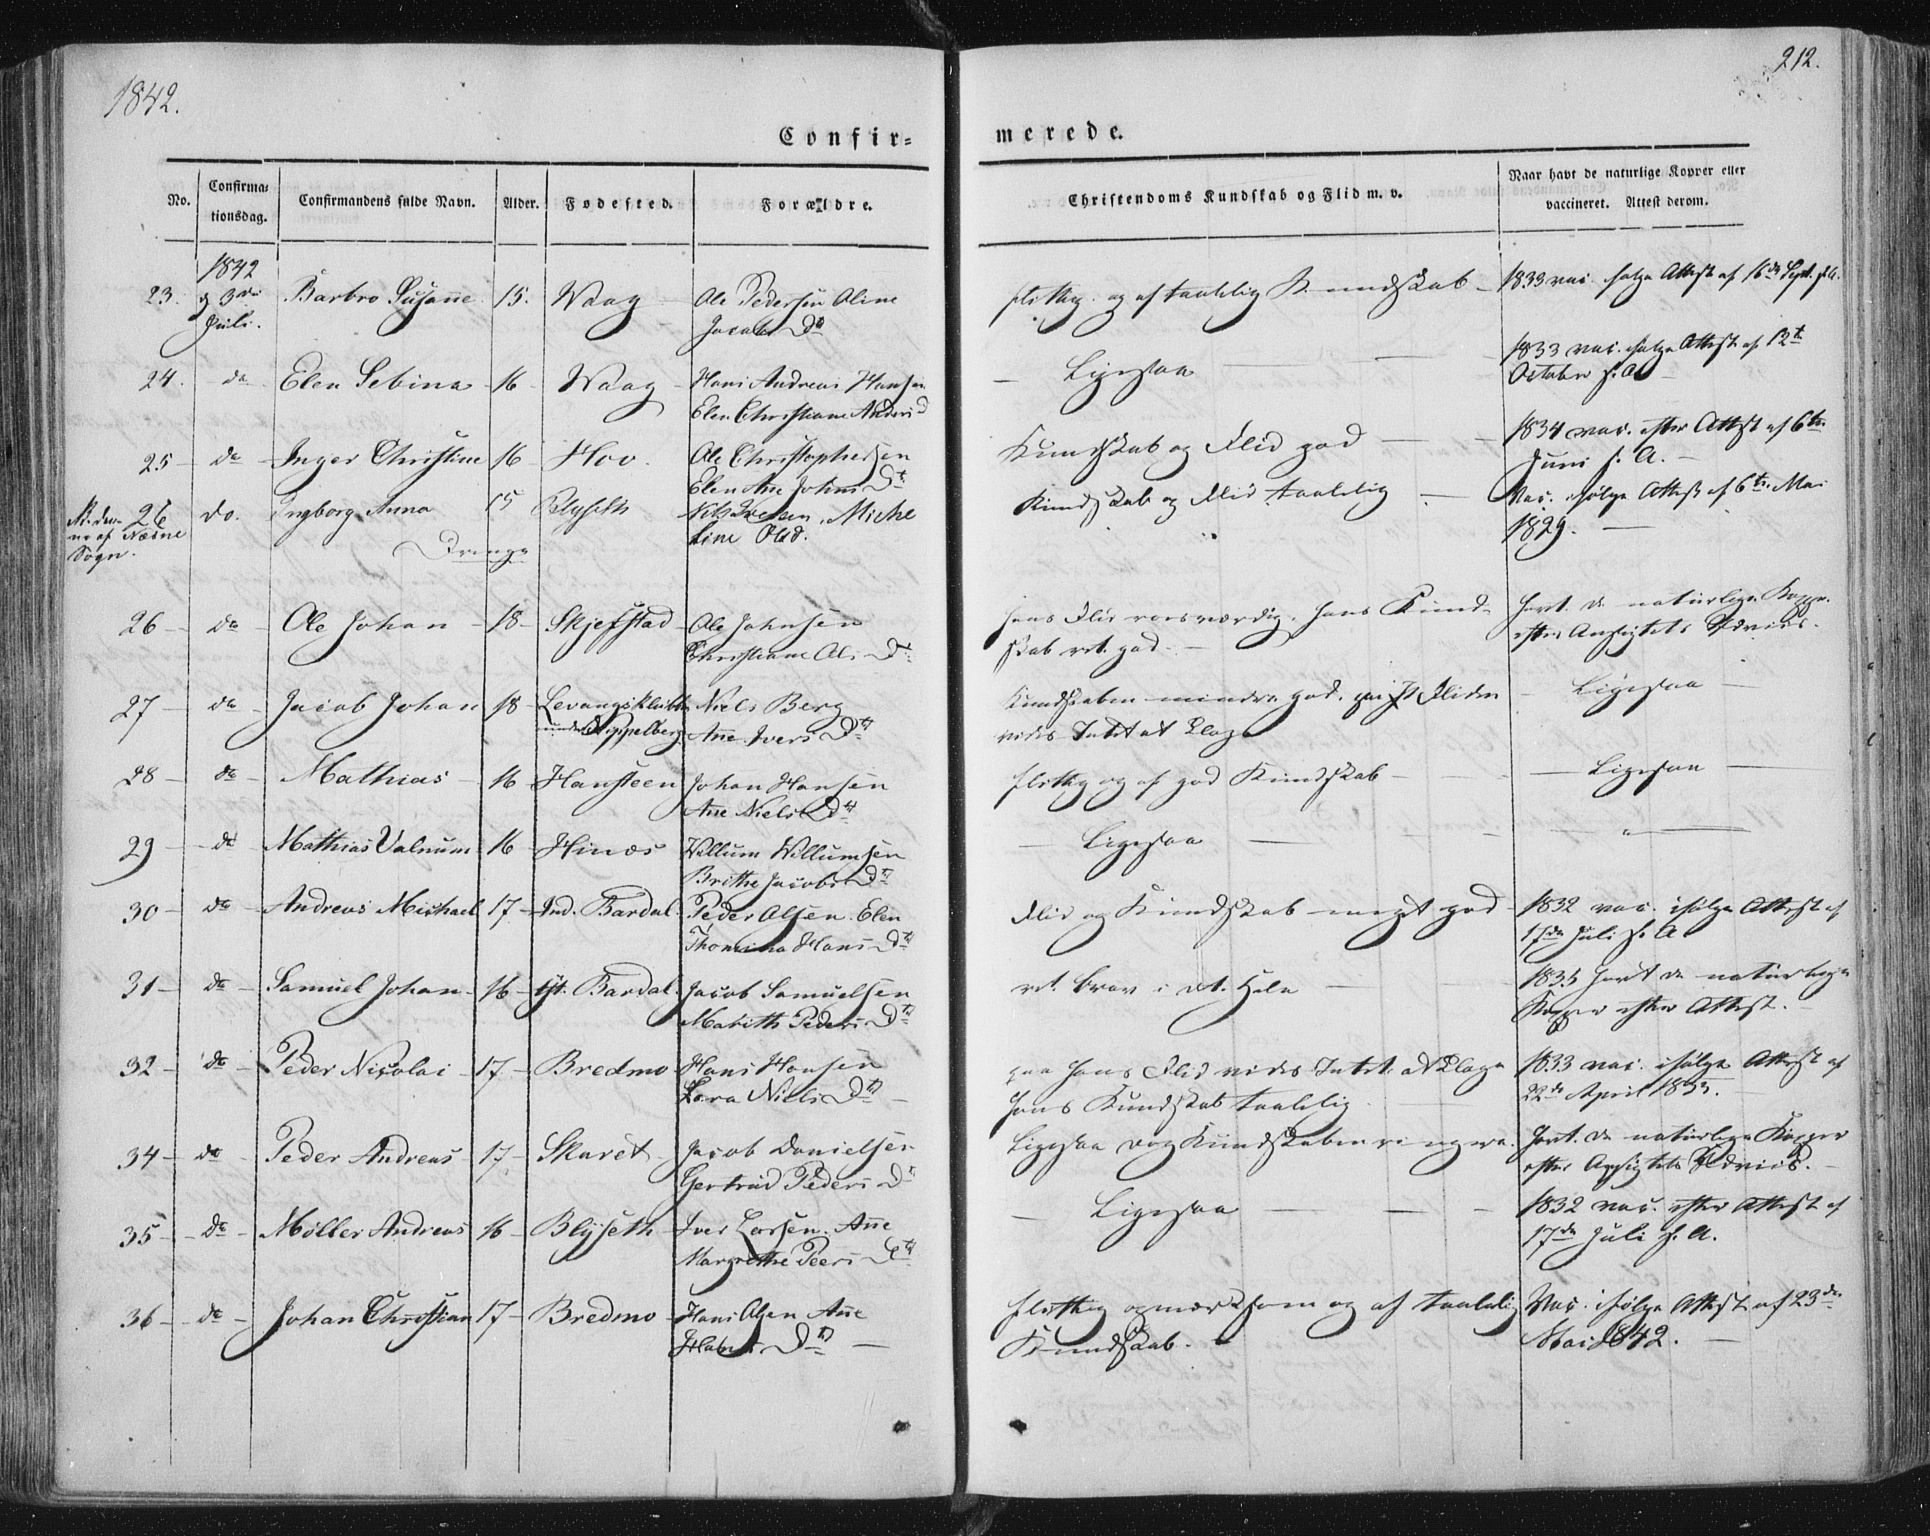 1842.
212.
Confir-
merede.
No.
Confirma-
tionsdag.
Confirmandens fulde Navn.
Alder.
Fødested.
Forældre.
Christendoms Kundskab og Flid m. v.
Naar havt de naturlige Kopper eller
vaccineret. Attest derom.
1842
23. 3die Barbro Susanne 15. Waag Ole Pedersen Oline flittig og af taalelig Kundskab 1833 vac. ifølge Attest af 16de Sept. s. A.
Juli. Jacobs Dr
24. do Elen Sebina 16 Waag Hans Andreas Hansen Ligesaa 1833 vac. ifølge Attest af 12te
Elen Christiane Anders d October s. A.
25 do Inger Christine 16 Hov. Ole Christophersen Kundskab og Flid god 1834 vac. efter Attest af 6te
Elen Ane Johns Dr Juni s. A.
26 do. Ingborg Anna 15 Blyseth Nils Iversen, Miche Kundskab og Flid taalelig Vac. ifølge Attest af 6te Mai
line Olsd. 1829.
af Næsne
Sogn.
Drenge
26 do Ole Johan 18 Skjefstad Ole Johnsen hans Flid roesværdig, hans Kund- havt de naturlige Kopper
Christiane Ols Dr skab ret god. efter Ansigtets Udviis.
27 do Jacob Johan 18 Levangsklubben Niels Berg Kundskaben mindre god. paa Fliden Ligesaa
under Ane Ivers Dr vides Intet at klage
28 do Mathias 16 Hansteen Johan Hansen flittig og af god Kundskab Ligesaa
Ane Niels Dr
29 do Mathias Valnum 16 Hinæs Willum Willumsen Ligesaa "
Brithe Jacobs Dr
30 do Andreas Michael 17 Ind. Bardal Peder Olsen. Elen Flid og Kundskab meget god 1832 vac. ifølge Attest af
Thomina Hans Dr 17de Juli s. A.
31 do Samuel Johan 16 Yt. Bardal. Jacob Samuelsen ret brav i det Hele 1835 havt de naturlige
Marith Peders Dr Kopper efter Attest.
32 do Peder Nicolai 17 Bredmo Hans Hansen paa hans Flid vides Intet at klage 1833 vac. ifølge Attest af
Lava Niels Dr hans Kundskab taalelig 22de April 1833.
34 do Peder Andreas 17 Skaret Jacob Danielsen Ligesaa dog Kundskaben ringere. havt de naturlige Kopper
Gertrud Peders Dr efter Ansigtets Udviis.
35 do Møller Andreas 16 Blyseth Iver Larsen. Ane Ligesaa 1832 vac. efter Attest af
Margrethe Peers Dr 17de Juli s. A.
36 do Johan Christian 17 Bredmo Hans Olsen Ane flittig opmærksom og af taalelig Vac. ifølge Attest af 23de
Dr Kundskab. Mai 1842.